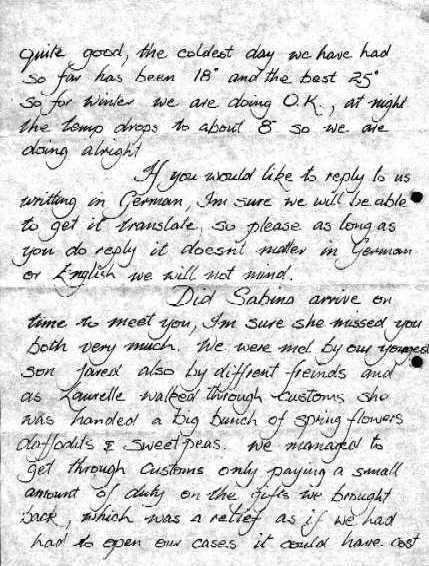 quite good, the coldest day we have had
so far has been 18° and the best 25°
so for winter we are doing O.K., at night
the temp drops to about 8° so we are
doing alright
If you would like to reply to us
writting in German, I'm sure we will be able
to get it translate, so please as long as
you do reply it doesn't matter in German
or English we will not mind.
Did Sabina arrive on
time to meet you, I'm sure she missed you
both very much. We were met by our youngest
son Jared also by diffrent freinds and
as Laurelle walked through customs she
was handed a big bunch of spring flowers
daffodils & sweetpeas. We managed to
get through Customs only paying a small
amount of duty on the gifts we brought
back, which was a relief as if we had
had to open our cases it could have cost